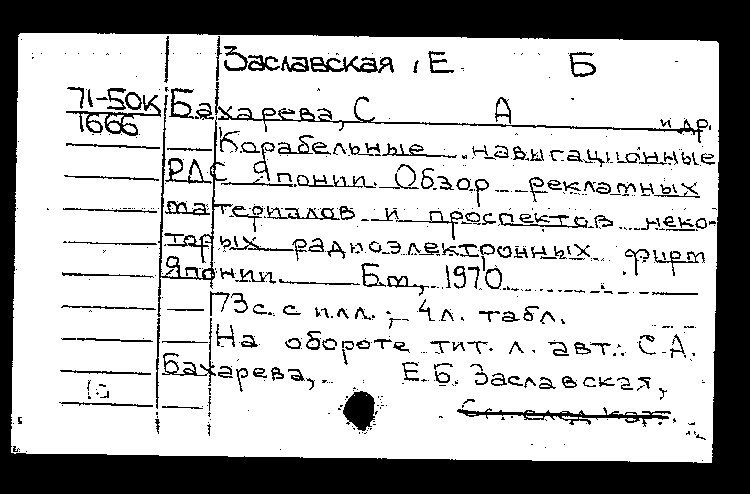 Заславская, Е. Б
71-50К Бахарева, С А
1666 и др.
Корабельные навигационные
РЛС Японии. Обзор рекламных
материалов и проспектов неко-
торых радиоэлектронных фирм
Японии. Б.м., 1970
73 с. с илл.; 4 л. табл.
На обороте тит. л. авт.: С.А.
Бахарева, Е.Б. Заславская,
См. след. карт.